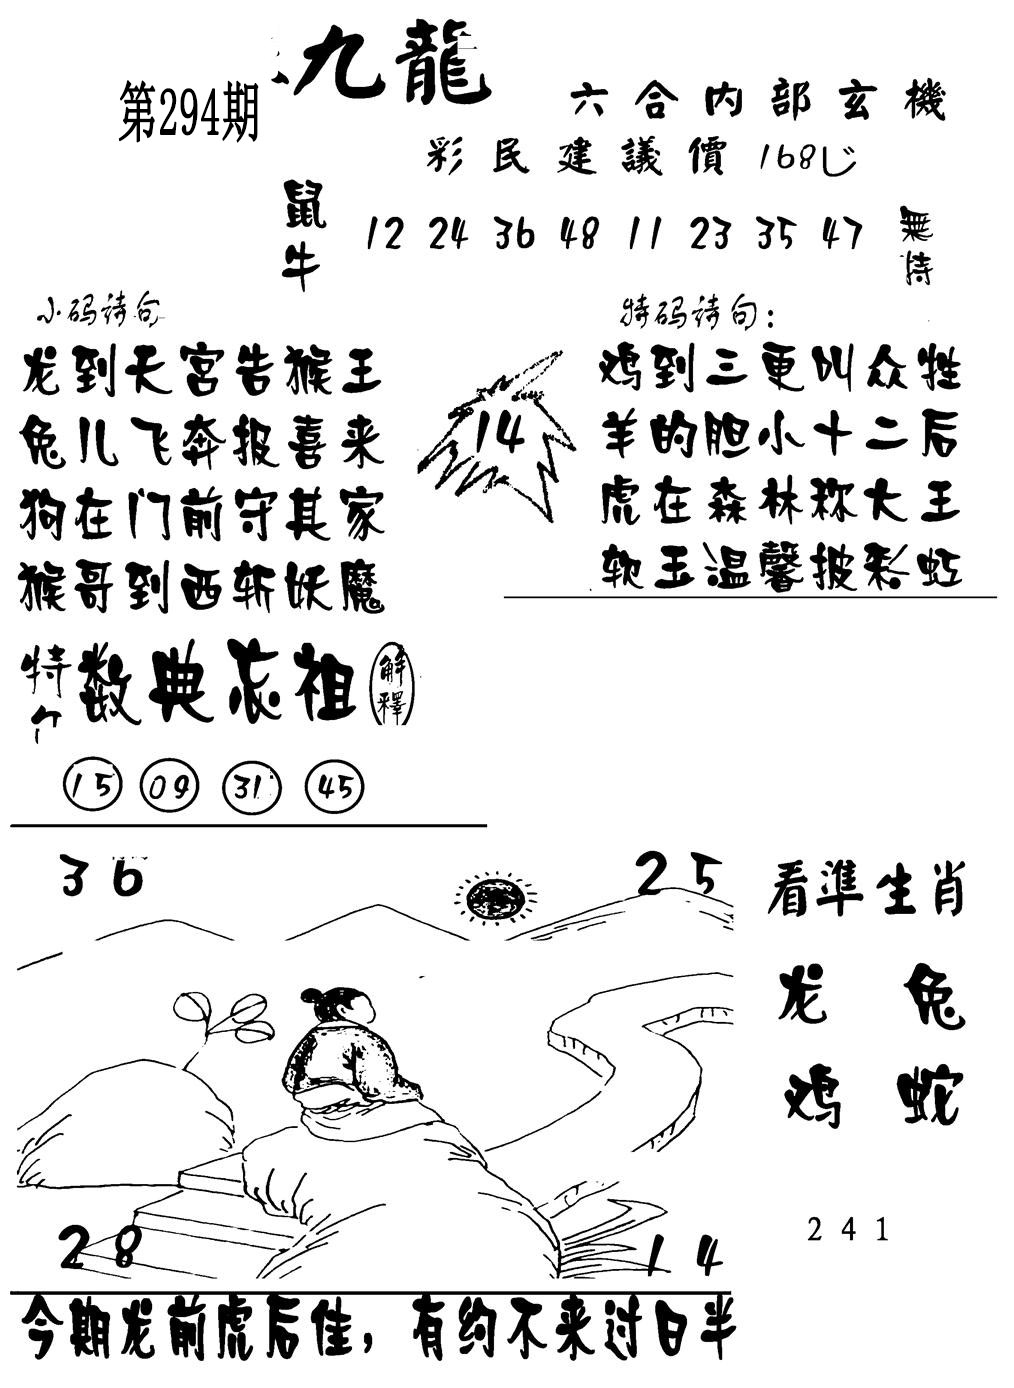 九龍
第294期
六合内部玄機
彩民建議價168
鼠牛
12 24 36 48 11 23 35 47
無特
小码诗句
龙到天宮告猴王
兔儿飞奔报喜来
狗在门前守其家
猴哥到西斩妖魔
14
特码诗句:
鸡到三更叫众牲
羊的胆小十二后
虎在森林称大王
软玉温馨披彩虹
特
数典忘祖
解釋
15 09 31 45
36
25
28
14
看準生肖
龙 兔
鸡 蛇
241
今期龙前虎后佳，有约不来过日半